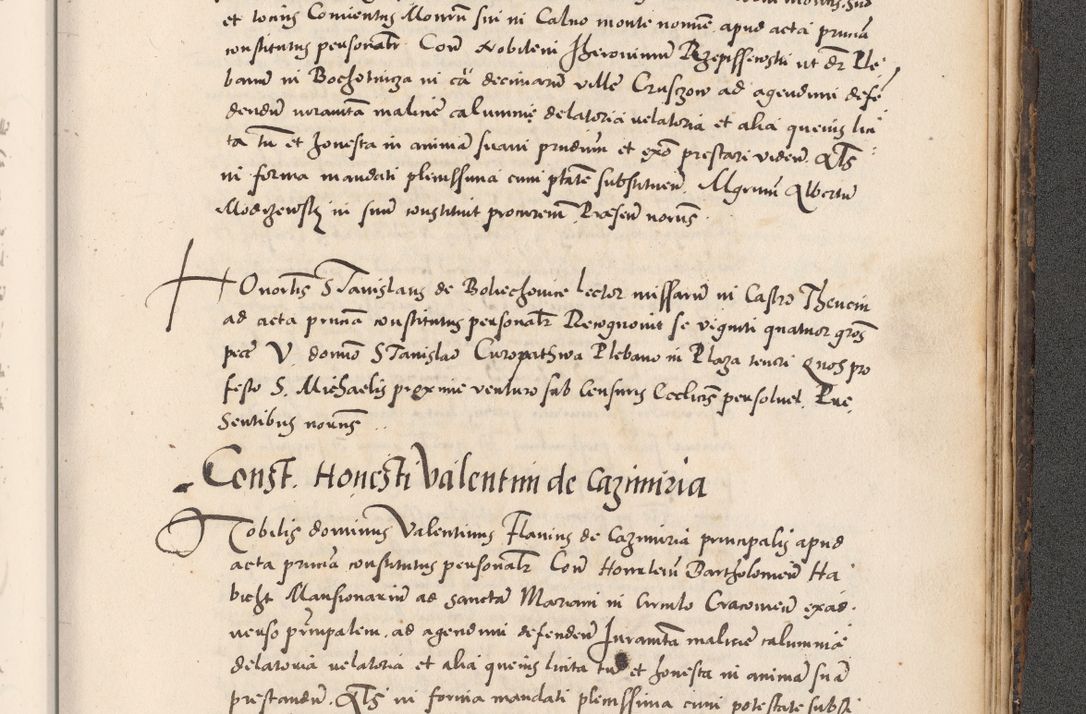 et totius Conventus Monrm sui in Calvo monte nomine apud acta prntia
constitutus personalr Con Nobilem Jheronimum Rzepissewski ut dr Ple
banum in Bochotnicza in cā decimarū ville Cruszow ad agendum defē
dendū iuramtā malicie calumnie delatoria velatoria et alia quevis lici
ta tñ et honesta in animā suam prndum et exō prestare viderū Qtls
in forma mandati plenissima cum ptāte substituen Mgrum Albertū
Modrzewsky in suū constituit procrorem Presen norūs
Honorlis Stanislaus de Bolechovice lector missarū in Castro Thencin
ad acta prntia constitutus personalr Recognovit se viginti quatuor gros
pecē V domno Stanislao Curopathwa Plebano in Plaza teneri Quos pro
festo S. Michaelis proxime venturo sub Censuris Ecclicis persolvet. Pre
sentibus norūs
Const. Honesti Valentini de Cazimiria
Nobilis dominus Valentinus Flavius de Cazimiria principalis apud
acta prntia constitutus personalr Con Honrlem Bartholomeū Ha
bicht Mansionariū ad sanctā Mariam in Circulo Cracovien exad
verso principalem ad agendum defenden Juramtā malicie calumnie
delatoria velatoria et alia quevis licita tñ et honesta in animā suā
prestandū. Qtls in forma mandati plenissima cum potestate subst